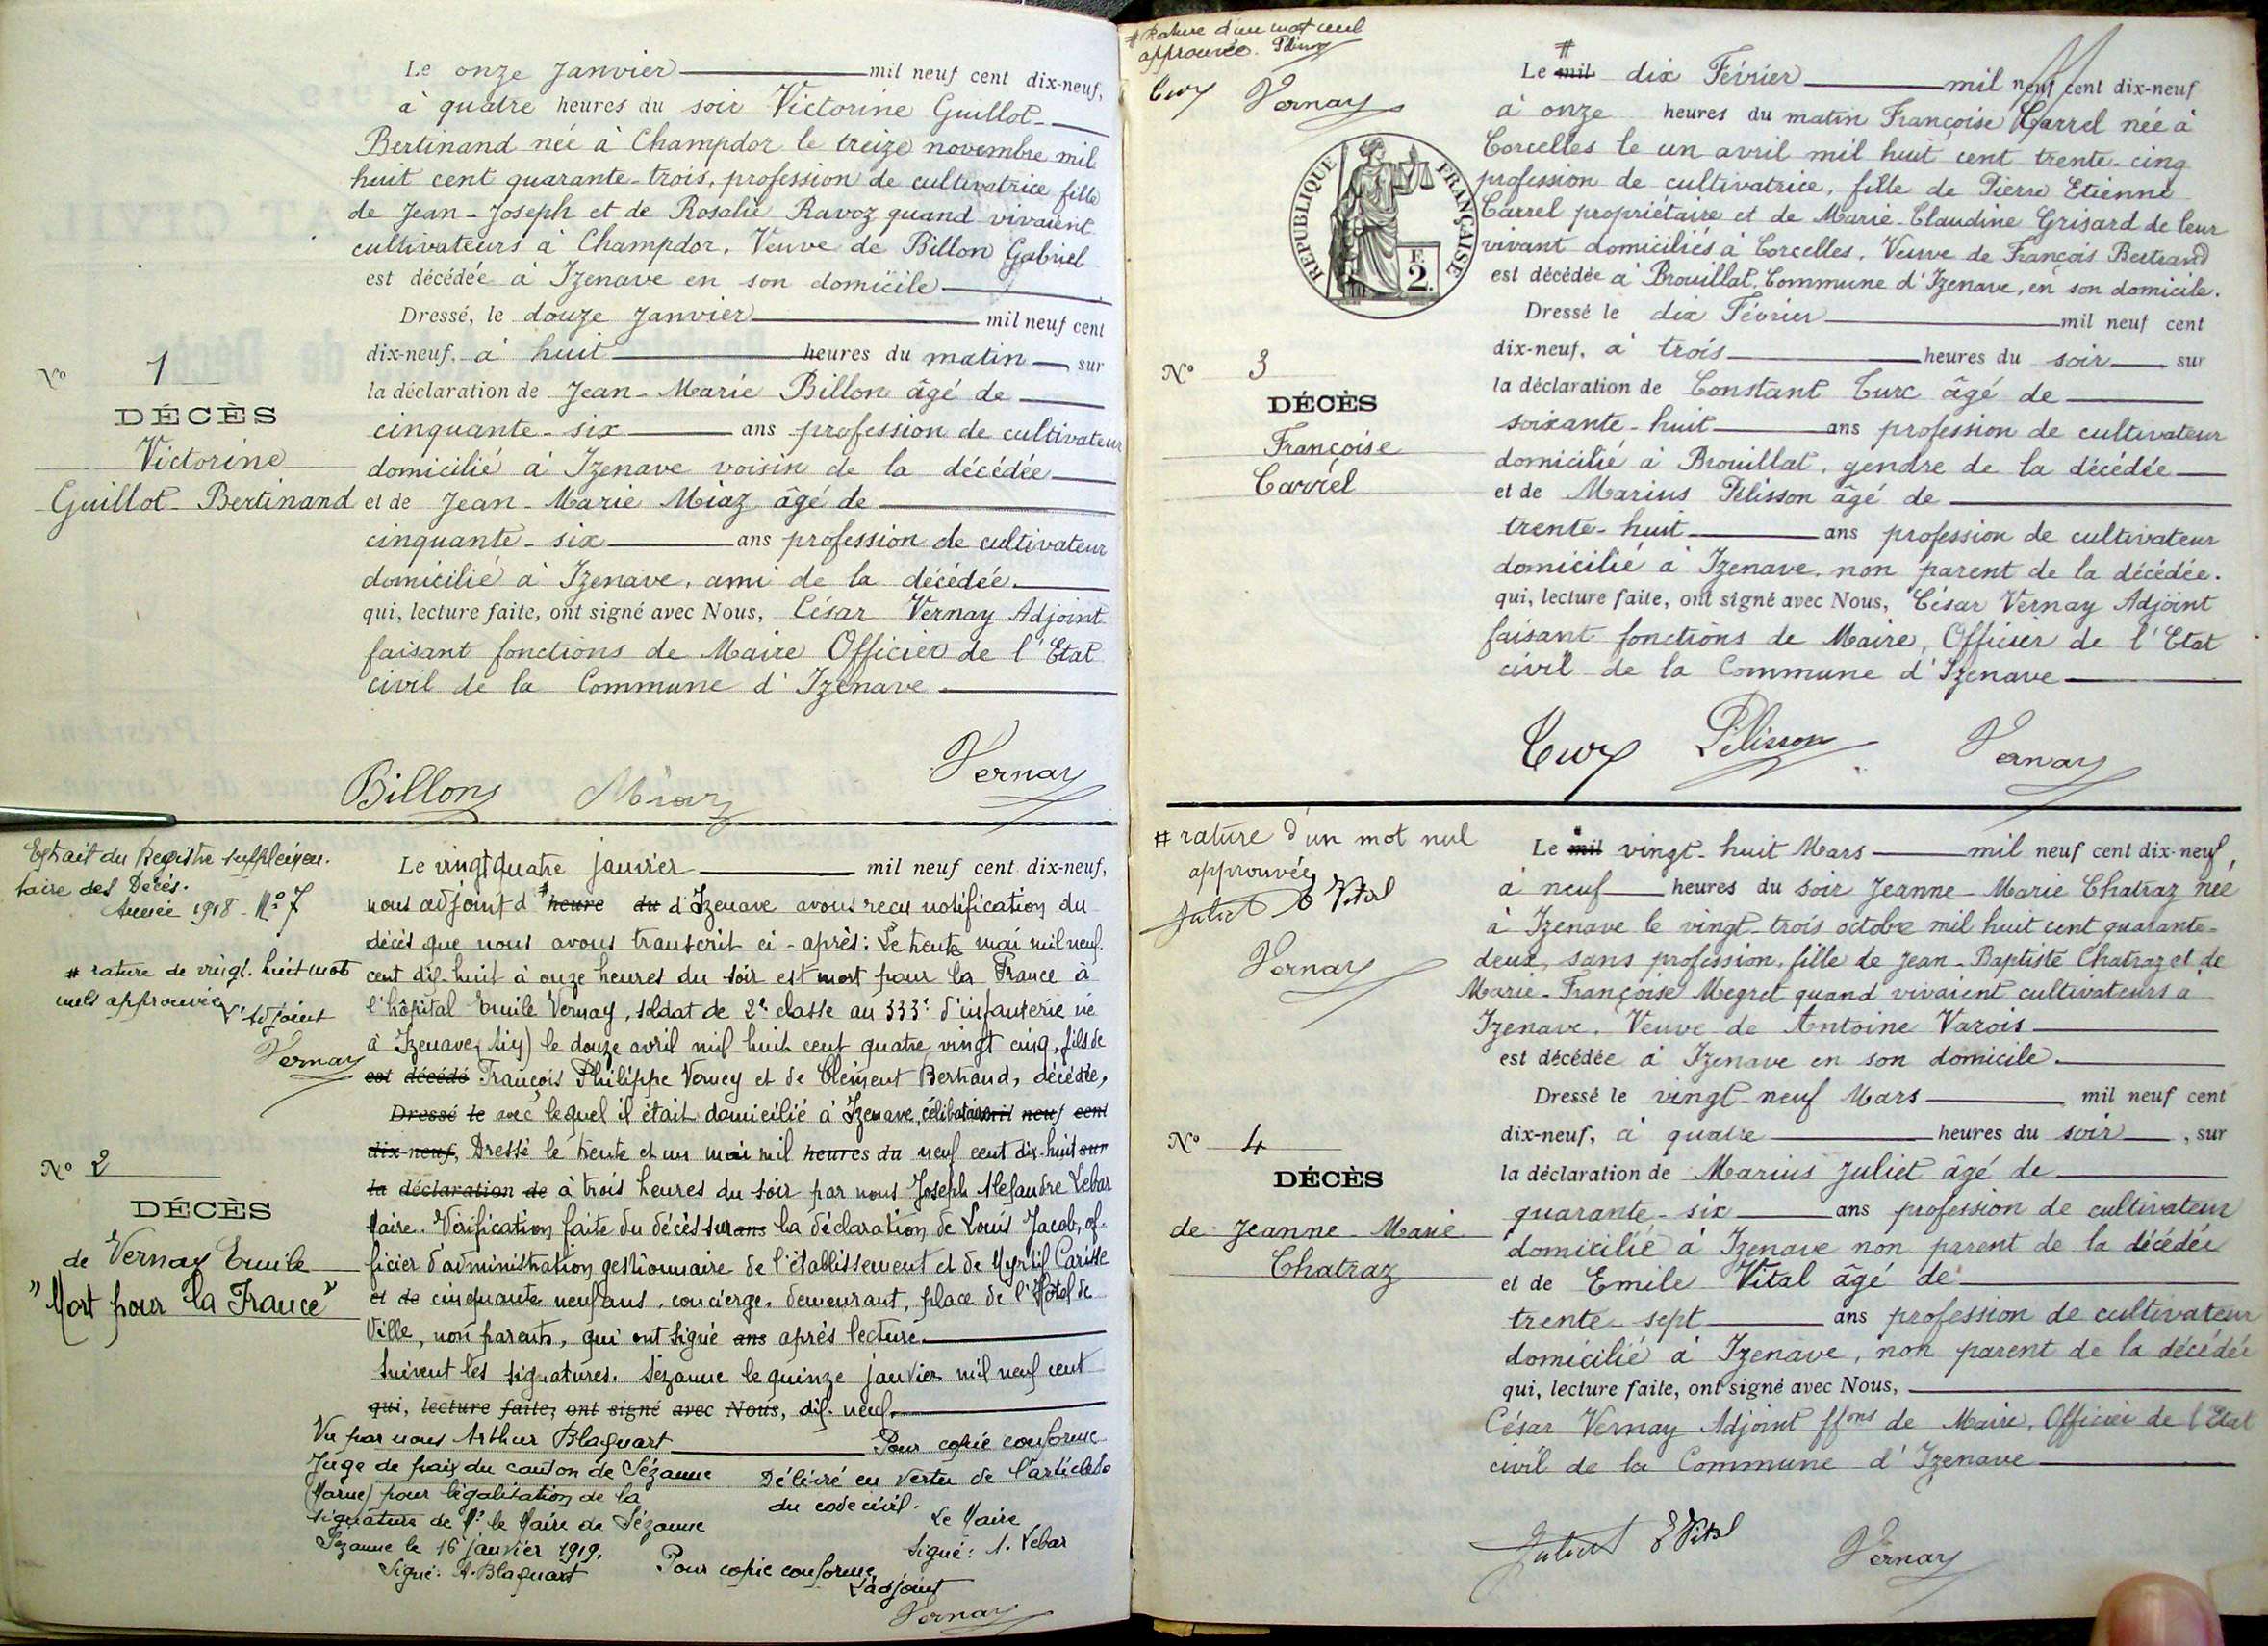 Le onze Janvier mil neuf cent dix-neuf,
à quatre heures du soir Victorine Guillot-
Bertinand née à Champdor le treize novembre mil
huit cent quarante-trois, profession de cultivatrice fille
de Jean-Joseph et de Rosalie Ravoz quand vivaient
cultivateurs à Champdor, Veuve de Billon Gabriel
est décédée à Izenave en son domicile
Dressé, le douze Janvier mil neuf cent
dix-neuf, à huit heures du matin sur
la déclaration de Jean-Marie Billon âgé de
cinquante-six ans profession de cultivateur
domicilié à Izenave voisin de la décédée
et de Jean-Marie Miaz âgé de
cinquante-six ans profession de cultivateur
domicilié à Izenave, ami de la décédée.
qui, lecture faite, ont signé avec Nous, César Vernay Adjoint
faisant fonctions de Maire Officier de l'Etat
civil de la Commune d'Izenave.
N° 1
DÉCÈS
Victorine
Guillot-Bertinand
Billon Miaz Vernay
Extrait du Registre
taire des Décès.
Année 1918 - N° 7
# rature de vingt-huit mots
nuls approuvée
L'Adjoint
Vernay
N° 2
DÉCÈS
de Vernay Emile
"Mort pour la France"
Le vingt quatre janvier mil neuf cent dix-neuf,
nous adjoint d # heure du d'Izenave avons reçu notification du
décès que nous avons transcrit ci-après: Le trente mai mil neuf
cent dix-huit à onze heures du soir est mort pour la France à
l'hôpital Emile Vernay, soldat de 2e classe au 333e d'infanterie né
à Izenave (Ain) le douze avril mil huit cent quatre vingt cinq, fils de
est décédé François Philippe Verney et de Clément Bertrand, décédée,
Dressé le avec lequel il était domicilié à Izenave, célibataire mil neuf cent
dix-neuf, Dressé le trente et un mai mil heures du neuf cent dix-huit sur
la déclaration de à trois heures du soir par nous Joseph Alexandre Lebar
Maire. Vérification faite du décès sur ans la déclaration de Louis Jacob, of-
ficier d'administration gestionnaire de l'établissement et de Myrtil Carisse
et de cinquante neuf ans, concierge, demeurant, place de l'Hôtel de
Ville, non parents, qui ont signé ans après lecture.
Suivent les signatures. Sézanne le quinze janvier mil neuf cent
qui, lecture faite, ont signé avec Nous, dix-neuf.
Vu par nous Arthur Blaquart Pour copie conforme
Juge de paix du canton de Sézanne Délivré en vertu de l'article 80
(Marne) pour légalisation de la du code civil.
signature de Mr le Maire de Sézanne Le Maire
Sézanne le 16 janvier 1919. Signé: A. Lebar
Signé: A. Blaquart Pour copie conforme
L'adjoint
Vernay
# Rature d'un mot nul
approuvée. Pélisson
Turc Vernay
REPUBLIQUE FRANÇAISE
F.
2.
N° 3
DÉCÈS
Françoise
Carrel
#
Le mil dix Février mil neuf cent dix-neuf
à onze heures du matin Françoise Carrel née à
Corcelles le un avril mil huit cent trente-cinq
profession de cultivatrice, fille de Pierre Etienne
Carrel propriétaire et de Marie-Claudine Grisard de leur
vivant domiciliés à Corcelles, Veuve de François Bertrand
est décédée à Brouillat, Commune d'Izenave, en son domicile.
Dressé le dix Février mil neuf cent
dix-neuf, à trois heures du soir sur
la déclaration de Constant Turc âgé de
soixante-huit ans profession de cultivateur
domicilié à Brouillat, gendre de la décédée
et de Marius Pélisson âgé de
trente-huit ans profession de cultivateur
domicilié à Izenave, non parent de la décédée.
qui, lecture faite, ont signé avec Nous, César Vernay Adjoint
faisant fonctions de Maire, Officier de l'Etat
civil de la Commune d'Izenave
Turc Pélisson Vernay
# rature d'un mot nul
approuvée
Juliet E Vital
Vernay
N° 4
DÉCÈS
de Jeanne-Marie
Chatraz
Le mil vingt-huit Mars mil neuf cent dix-neuf,
à neuf heures du soir Jeanne-Marie Chatraz née
à Izenave le vingt-trois octobre mil huit cent quarante-
deux, sans profession, fille de Jean-Baptiste Chatraz et de
Marie-Françoise Megret quand vivaient cultivateurs à
Izenave. Veuve de Antoine Varois
est décédée à Izenave en son domicile.
Dressé le vingt-neuf Mars mil neuf cent
dix-neuf, à quatre heures du soir, sur
la déclaration de Marius Juliet âgé de
quarante-six ans profession de cultivateur
domicilié à Izenave non parent de la décédée
et de Emile Vital âgé de
trente-sept ans profession de cultivateur
domicilié à Izenave, non parent de la décédée
qui, lecture faite, ont signé avec Nous,
César Vernay Adjoint ffons de Maire, Officier de l'Etat
civil de la Commune d'Izenave
Juliet E Vital Vernay